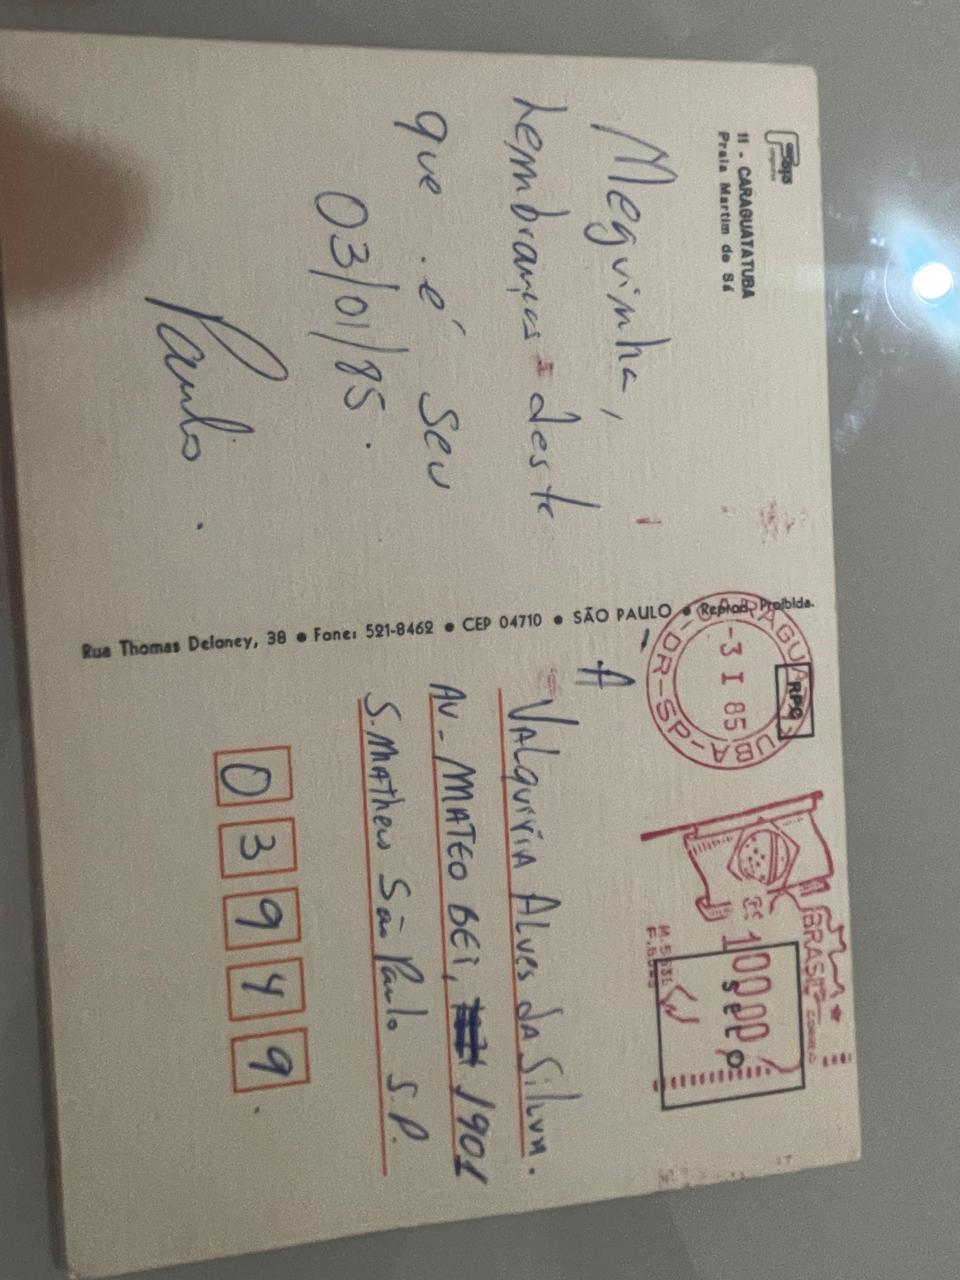 Foto
impress
11 - CARAGUATATUBA
Praia Martim de Sá
Meguinha,
Lembranças deste
que é seu
03/01/85.
Paulo.
Rua Thomas Deloney, 38 ● Fone: 521-8462 ● CEP 04710 ● SÃO PAULO ● Reprod. Proibida.
CARAGUATATUBA
RPC
-3 I 85
-DR-SP-
BRASIL
CORREIO
100,00
selo
À
VALquíriA Alves dA Silva.
AV - MATEO BEi, 1901
S. MAtheus São Paulo S.P.
03949.